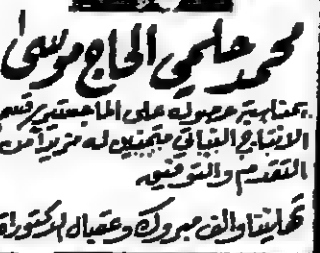 محمد حلمي الحاج موسى
بمناسبة حصوله على الماجستير قسم
الانتاج النباتي متمنين له مزيداً من
التقدم والتوفيق
تهانينا والف مبروك وعقبال الدكتوراة